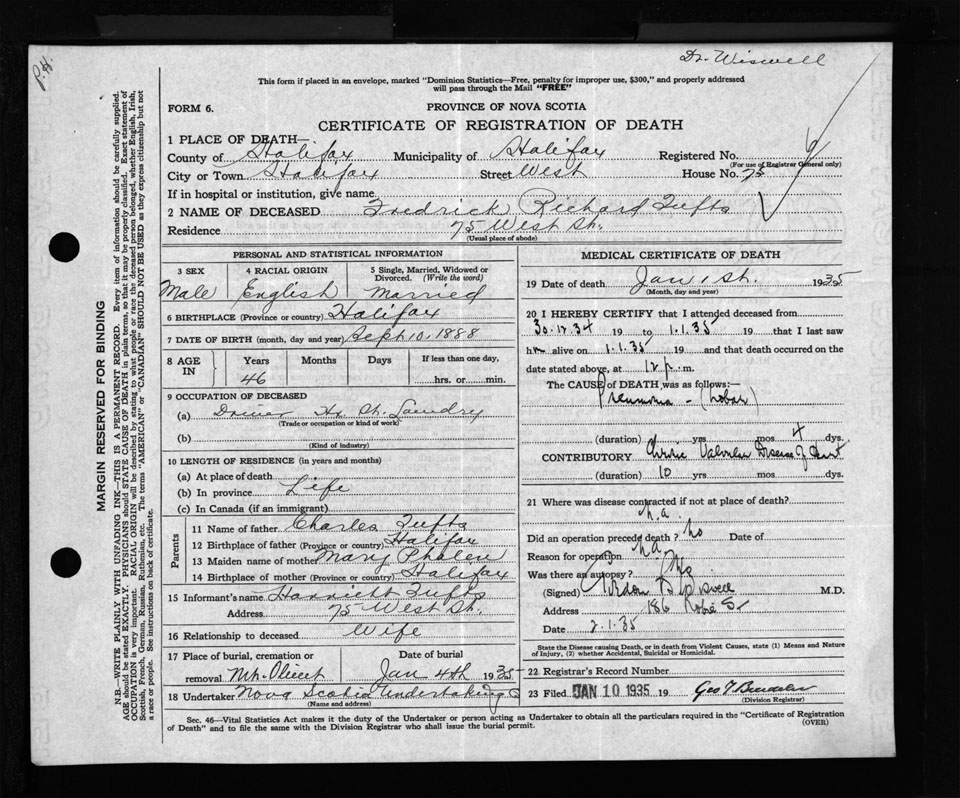 P.H.
Dr. Wiswell
This form if placed in an envelope, marked "Dominion Statistics—Free, penalty for improper use, $300," and properly addressed
will pass through the Mail "FREE"
FORM 6.
PROVINCE OF NOVA SCOTIA
CERTIFICATE OF REGISTRATION OF DEATH
1 PLACE OF DEATH—
County of Halifax Municipality of Halifax Registered No.
(For use of Registrar General only)
City or Town Halifax Street West House No. 75
If in hospital or institution, give name
2 NAME OF DECEASED Fredrick Richard Tufts
Residence 75 West St.
(Usual place of abode)
PERSONAL AND STATISTICAL INFORMATION
3 SEX 4 RACIAL ORIGIN 5 Single, Married, Widowed or
Divorced. (Write the word)
Male English Married
6 BIRTHPLACE (Province or country) Halifax
7 DATE OF BIRTH (month, day and year) Sept 10, 1888
8 AGE IN Years Months Days If less than one day,
46 hrs. or min.
9 OCCUPATION OF DECEASED
(a) Driver Hx St. Laundry
(Trade or occupation or kind of work)
(b)
(Kind of industry)
10 LENGTH OF RESIDENCE (in years and months)
(a) At place of death
(b) In province Life
(c) In Canada (if an immigrant)
Parents
11 Name of father Charles Tufts
12 Birthplace of father (Province or country) Halifax
13 Maiden name of mother Mary Phalen
14 Birthplace of mother (Province or country) Halifax
15 Informant's name Harriett Tufts
Address 75 West St.
16 Relationship to deceased Wife
17 Place of burial, cremation or Date of burial
removal Mt. Olivet Jan 4th 1935
18 Undertaker Nova Scotia Undertaking Co
(Name and address)
MEDICAL CERTIFICATE OF DEATH
19 Date of death Jan 1st. 1935
(Month, day and year)
20 I HEREBY CERTIFY that I attended deceased from
30.12.34 19 to 1.1.35 19 that I last saw
him alive on 1.1.35 19 and that death occurred on the
date stated above, at 12 p. m.
The CAUSE of DEATH was as follows:—
Pneumonia - (Lobar)
(duration) yrs mos 4 dys.
CONTRIBUTORY Chronic Valvular Disease of Heart
(duration) 10 yrs mos dys.
21 Where was disease contracted if not at place of death?
n.a.
Did an operation precede death? no Date of
Reason for operation n.a.
Was there an autopsy? No
(Signed) Gordon B Wiswell M.D.
Address 186 Robie St
Date 2.1.35
State the Disease causing Death, or in death from Violent Causes, state (1) Means and Nature
of Injury, (2) whether Accidental, Suicidal or Homicidal.
22 Registrar's Record Number
23 Filed JAN 10 1935 19
(Division Registrar)
Sec. 46—Vital Statistics Act makes it the duty of the Undertaker or person acting as Undertaker to obtain all the particulars required in the "Certificate of Registration
of Death" and to file the same with the Division Registrar who shall issue the burial permit. (OVER)
MARGIN RESERVED FOR BINDING
N.B.—WRITE PLAINLY WITH UNFADING INK—THIS IS A PERMANENT RECORD. Every item of information should be carefully supplied.
AGE should be stated EXACTLY. PHYSICIANS should STATE CAUSE OF DEATH in plain terms, so that it may be properly classified. Exact statement of
OCCUPATION is very important. RACIAL ORIGIN will be described by stating to what people or race the deceased person belonged, whether English, Irish,
Scottish, French, German, Russian, Ruthenian, etc. The terms "AMERICAN" or "CANADIAN" SHOULD NOT BE USED as they express citizenship but not
a race or people. See instructions on back of certificate.